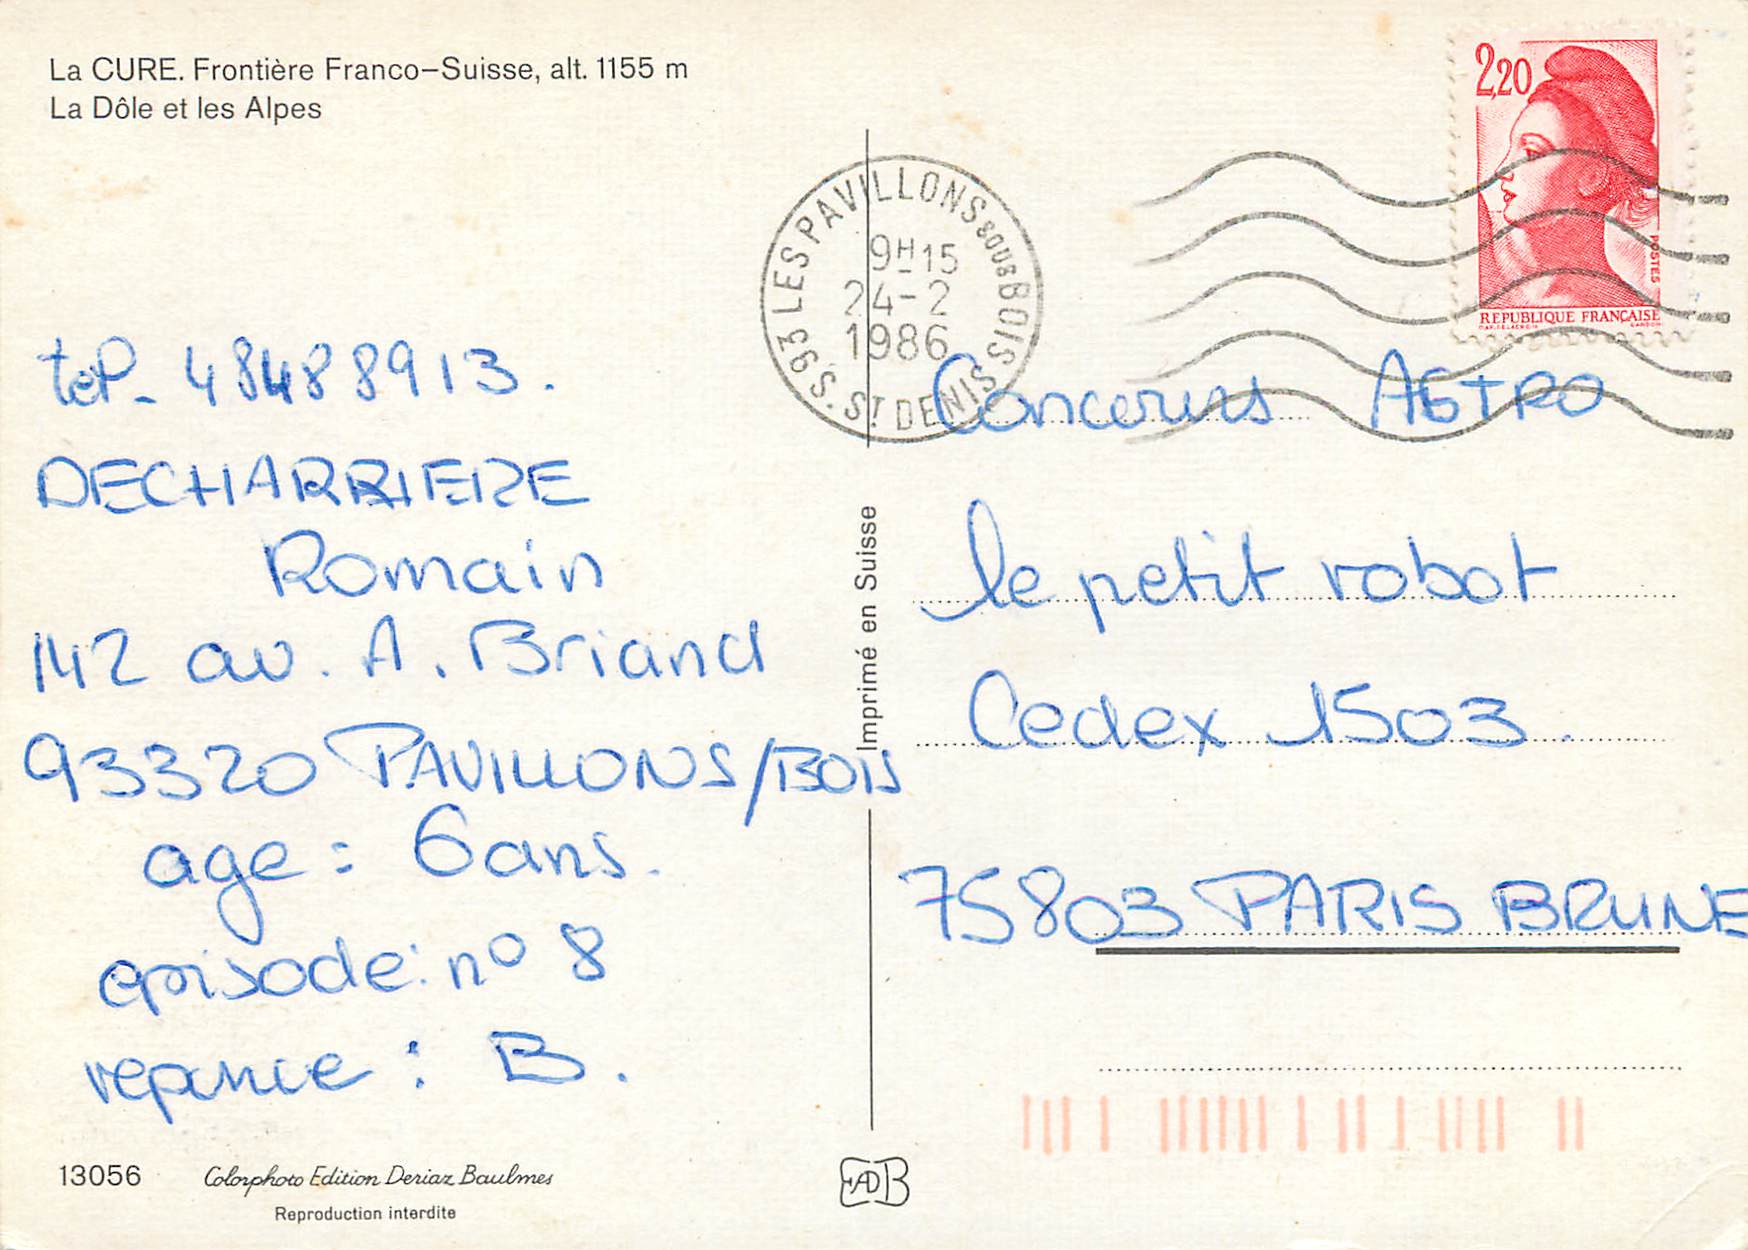 La CURE. Frontière Franco-Suisse, alt. 1155 m
La Dôle et les Alpes
2,20
POSTES
REPUBLIQUE FRANÇAISE
93 LES PAVILLONS SOUS BOIS
S. ST DENIS
9H15
24-2
1986
tel. 48488913.
DECHARRIERE
Romain
142 av. A. Briand
93320 PAVILLONS/BOIS
age : 6 ans.
episode: n° 8
reponce : B.
Imprimé en Suisse
Concours ASTRO
le petit robot
Cedex 1503.
75803 PARIS BRUNE
13056
Colorphoto Edition Deriaz Baulmes
Reproduction interdite